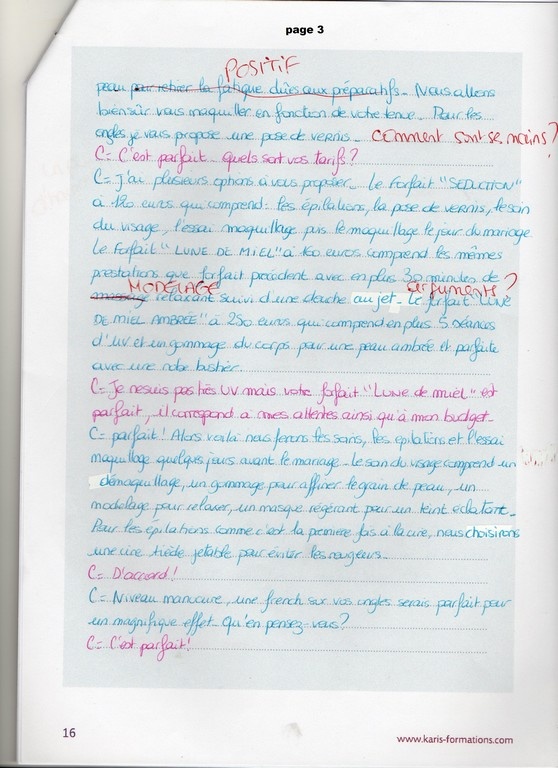 page 3
POSITIF
peau par retirer la fatigue dûes aux préparatifs. Nous allons
bien sûr vous maquiller en fonction de votre tenue. Pour les
ongles je vous propose une pose de vernis. Comment sont ses mains?
C= C'est parfait. quels sont vos tarifs?
C= J'ai plusieurs options à vous proposer. Le Forfait "SEDUCTION"
à 120 euros qui comprend: les épilations, la pose de vernis, le soin
du visage, l'essai maquillage puis le maquillage le jour du mariage.
Le forfait "LUNE DE MIEL" à 160 euros comprend les mêmes
prestations que forfait précédent avec en plus 30 minutes de
MODELAGE arguments?
massage relaxant suivi d'une douche au jet. Le forfait "LUNE
DE MIEL AMBRÉE" à 250 euros qui comprend en plus 5 séances
d'UV et un gommage du corps pour une peau ambrée et parfaite
avec une robe bustier.
C= Je ne suis pas très UV mais votre forfait "LUNE de miel" est
parfait, il correspond à mes attentes ainsi qu'à mon budget.
C= parfait! Alors voilà nous ferons les soins, les épilations et l'essai
maquillage quelques jours avant le mariage. Le soin du visage comprend un
démaquillage, un gommage pour affiner le grain de peau, un
modelage pour relaxer, un masque régérant pour un teint eclatant.
Pour les épilations comme c'est la première fois à la cire, nous choisirons
une cire tiède jetable pour éviter les rougeurs.
C= D'accord!
C= Niveau manucure, une french sur vos ongles serais parfait pour
un magnifique effet. Qu'en pensez-vous?
C= C'est parfait!
16
www.karis-formations.com